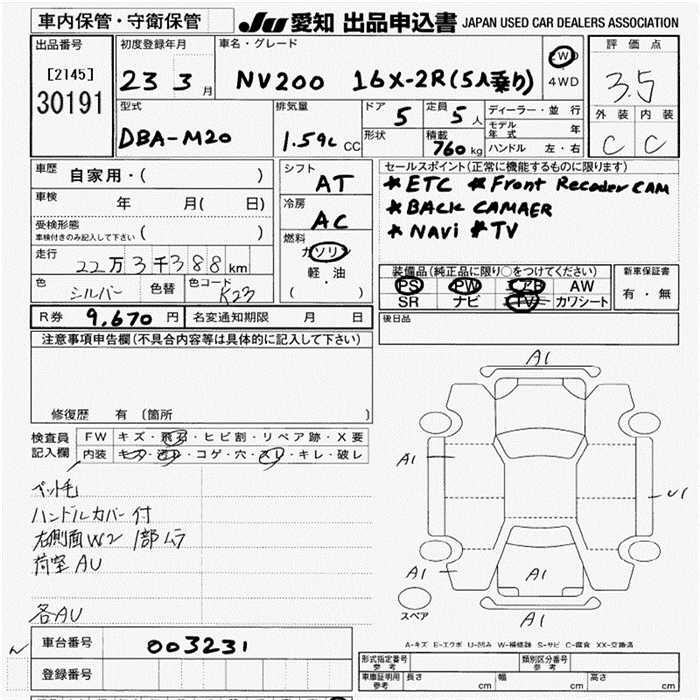 車内保管・守衛保管
JU 愛知 出品申込書 JAPAN USED CAR DEALERS ASSOCIATION
出品番号
[2145]
30191
初度登録年月
23 3 月
車名・グレード
NV200 16X-2R(5人乗り)
2WD
4WD
評価点
3.5
外装 内装
C C
型式
DBA-M20
排気量
1.59L CC
ドア 5
形状
定員 5 人
積載 760 kg
ディーラー・並行
モデル年式 年
ハンドル 左・右
車歴
自家用・( )
車検 年 月( 日)
受検形態
車検付きのみ記入して下さい ( )
走行
22万3千388km
色 シルバー 色替 色コード K23
シフト
AT
冷房
AC
燃料
ガソリン
軽・油
( )
セールスポイント(正常に機能するものに限ります)
*ETC *Front Recoder CAM
*BACK CAMAER
*NAVi *TV
装備品(純正品に限り○をつけてください)
PS PW エアB AW
SR ナビ TV カワシート
新車保証書
有・無
R券 9,670 円 名変通知期限 月 日
後日品
注意事項申告欄(不具合内容等は具体的に記入して下さい)
修復歴 有 (箇所 )
検査員記入欄
FW キズ・飛石・ヒビ割・リペア跡・X要
内装 キズ・汚レ・コゲ・穴・スレ・キレ・破レ
ペット毛
ハンドルカバー付
右側面W2 1部ムラ
荷室AU
各AU
A1
A1
U1
A1
A1
A1
A1
スペア
A-キズ E-エクボ U-凹み W-補修跡 S-サビ C-腐食 XX-交換済
車台番号 003231
登録番号
型式指定番号 参考
類別区分番号 参考
車庫証明用 参考 長さ cm 幅 cm 高さ cm